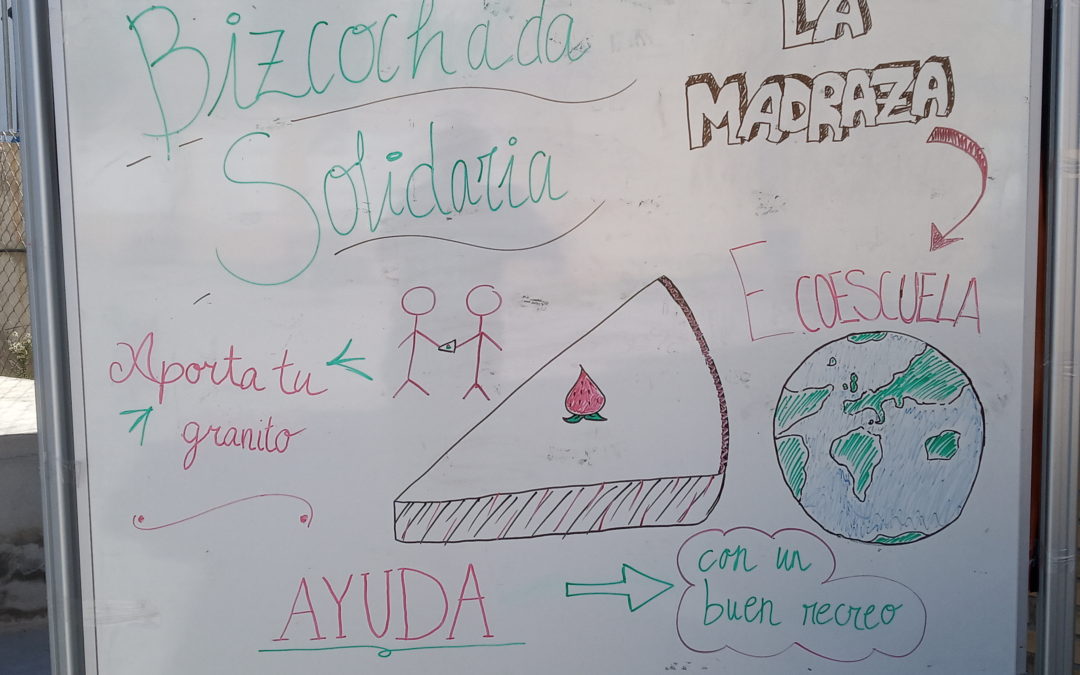 Bizcochada
Solidaria
LA
MADRAZA
ECOESCUELA
Aporta tu
granito
AYUDA
con un
buen recreo